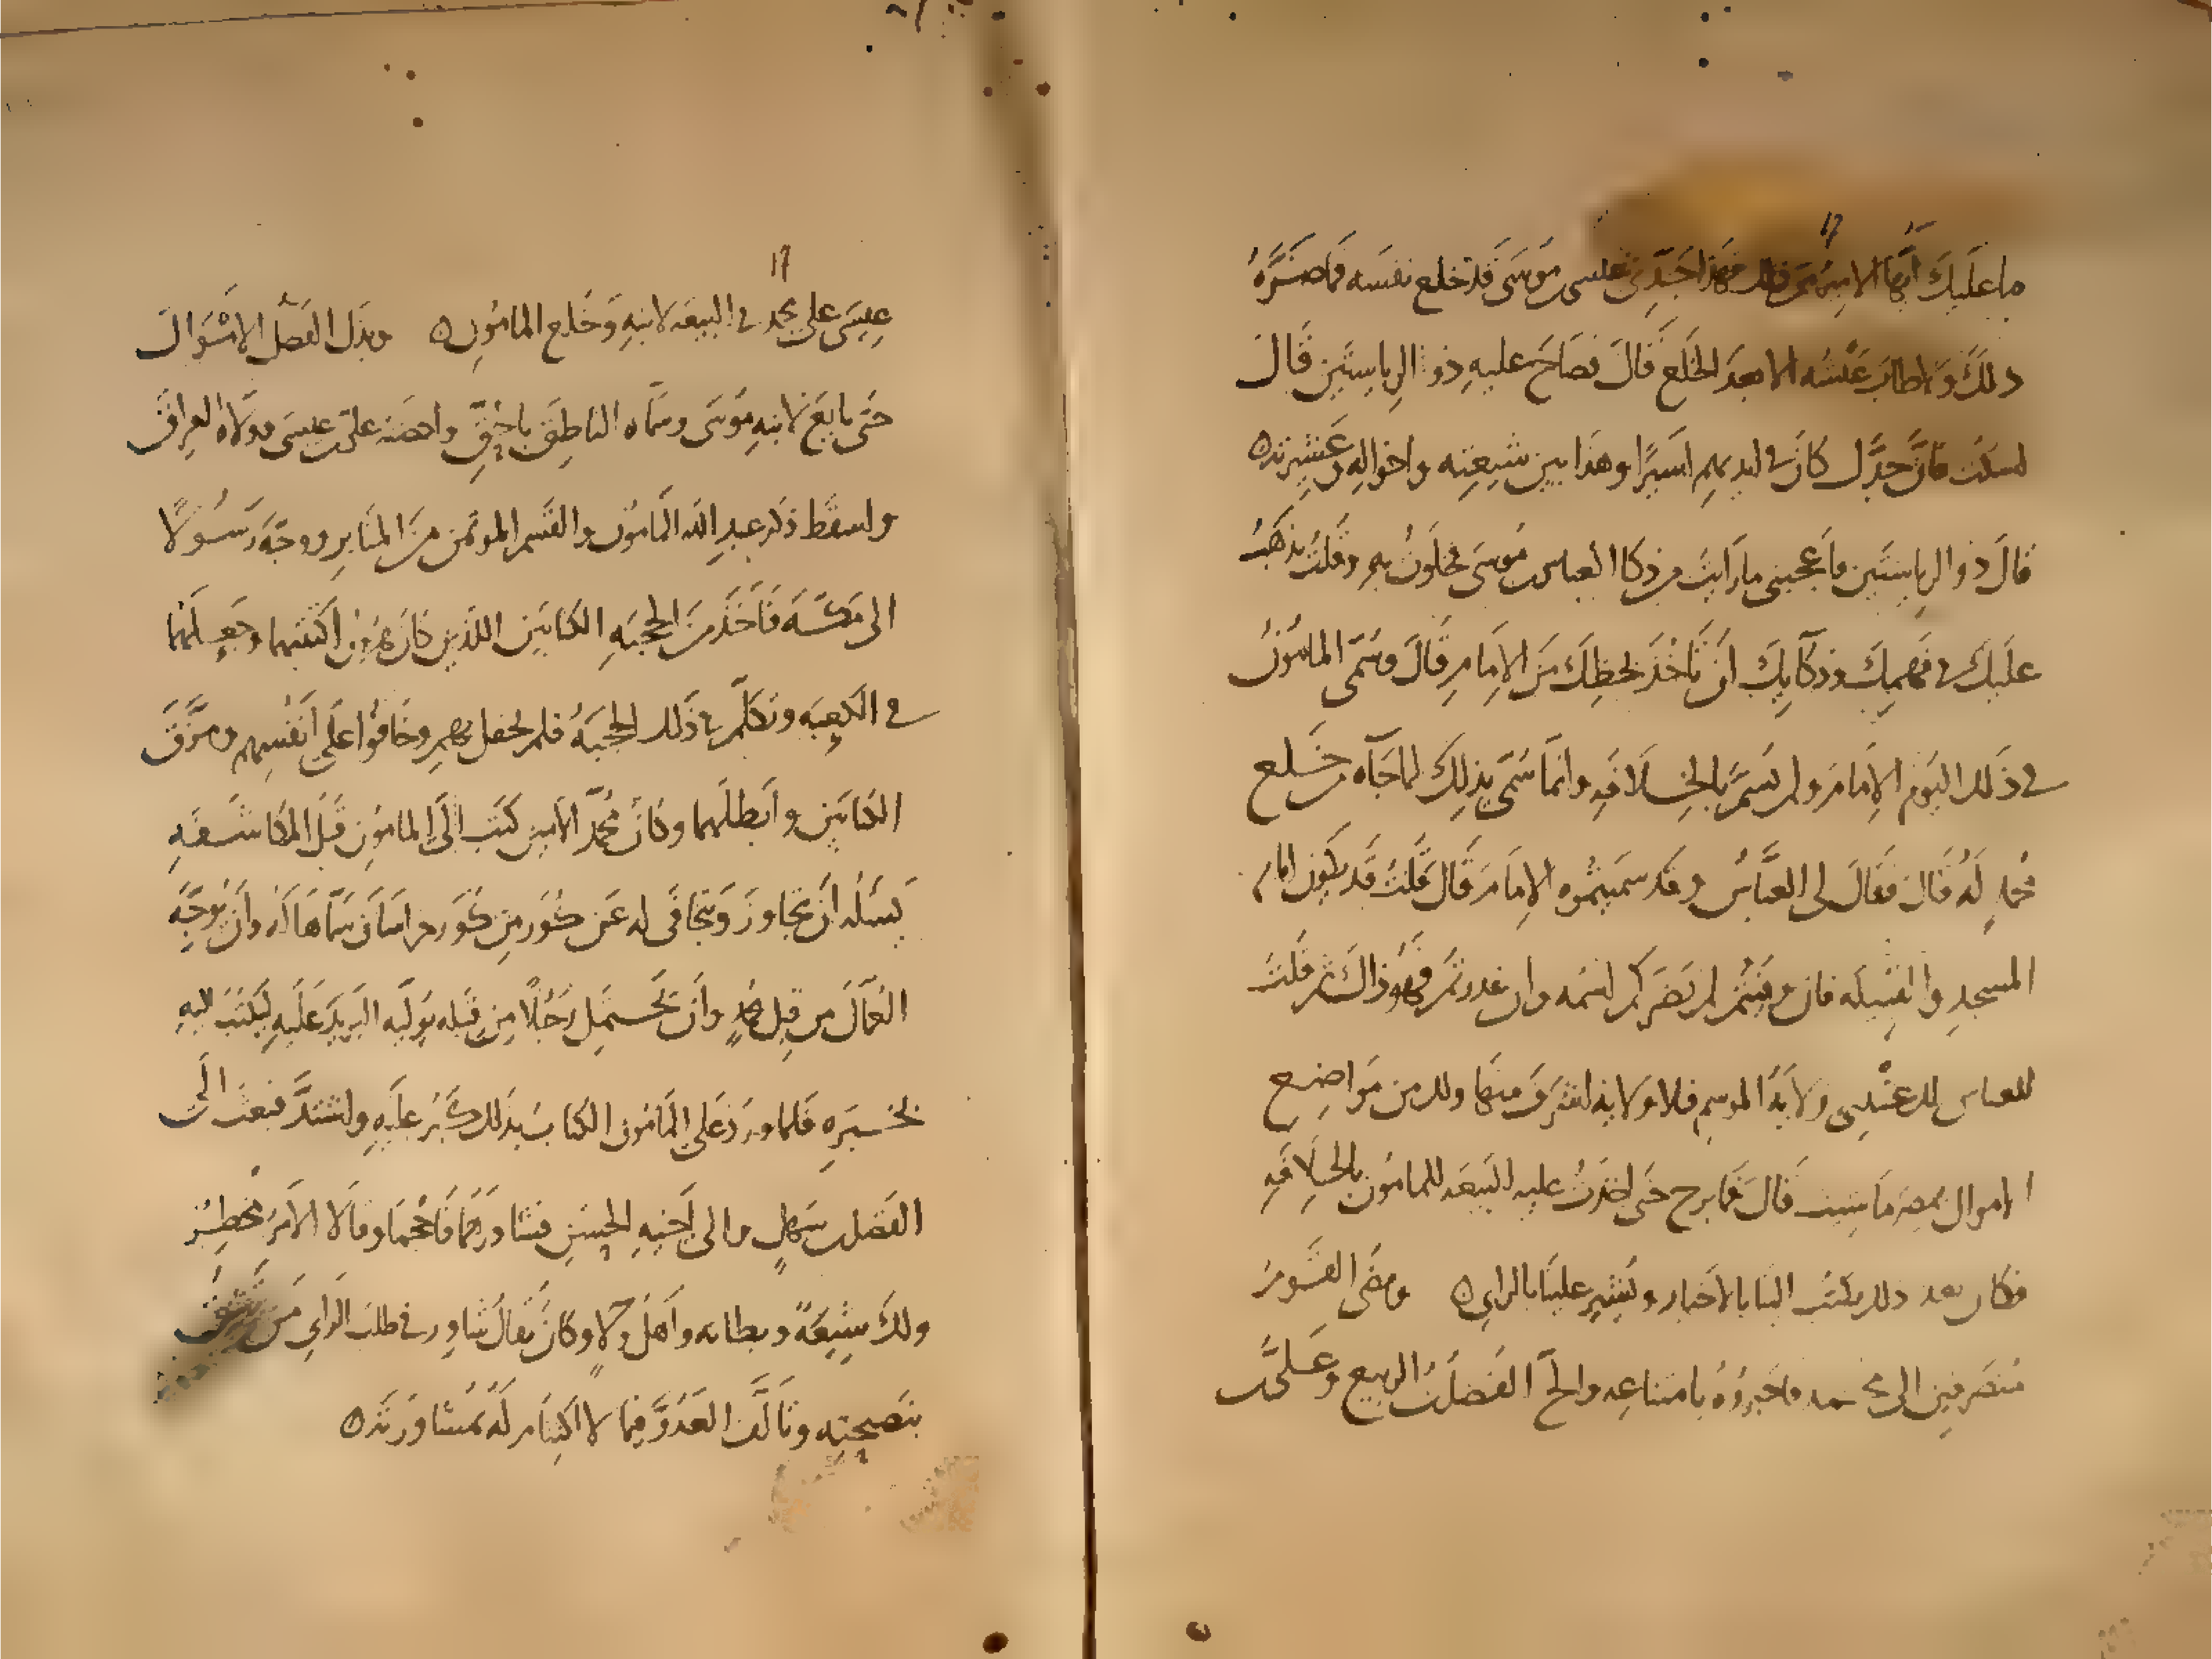 ١٦
ما عليك أيها الأمير من ذلك فهذا جدي عيسى بن موسى قد خلع نفسه فما ضره
ذلك ولا طاب عيشه الا بعد الخلع قال فصاح عليه ذو الرياستين قال
اسكت فان جدك كان في ايديهم اسيرا وهذا بين شيعته واخواله وعشيرته
قال ذو الرياستين فاعجبني ما رايت من ذكا العباس بن موسى فخلوت به وقلت يذهب
عليك في فهمك وذكايك ان تاخذ بحظك من الامام قال وسمي المامون
في ذلك اليوم الامام ولم يسم بالخلافه وانما سمي بذلك لما جاه من خلع
محمد له قال فقال لي العباس وقد سميتموه الامام قال قلت قد يكون امام
المسجد والقبيله فان وفيتم لم يضركم اسمه وان غدرتم فهو ذاك ثم قلت
للعباس لك عندي ولاية الموسم فلا ولاية اشرف منها ولك من مواضع
الاموال بمصر ما شيت قال فما برح حتى اخذت عليه البيعه للمامون بالخلافه
فكان بعد ذلك يكتب الينا بالاخبار ويشير علينا بالراي ه ومضى القوم
منصرفين الى محمد فاخبروه بامتناعه والح الفضل بن الربيع وعلي بن
١٦
عيسى على محمد في البيعه لابنه وخلع المامون ه وبذل الفضل الاموال
حتى بايع لابنه موسى وسماه الناطق بالحق واحضنه علي بن عيسى وولاه العراق
واسقط ذكر عبد الله المامون والقسم الموتمن من المنابر ووجه رسولا
الى مكة فاخذ من الحجبه الكتابين اللذين كان هرون اكتتبهما وجعلهما
في الكعبه وتكلم في ذلك الحجبه فلم يحفل بهم وخافوا على انفسهم ومزق
الكتابين وابطلهما وكان محمد الامين كتب الى المامون قبل المكاشفه
يسئله ان يتجاوز ويتجافى له عن كور من كور خراسان سماها له وان يوجه
العمال من قبل محمد وان يحتمل رجلا من قبله يوليه البريد عليه ليكتب اليه
بخبره فلما ورد على المامون الكتاب بذلك كبر عليه واشتد فبعث الى
الفضل بن سهل والى اخيه الحسن فشاورهما فاقحما وقالا الامر خطير
ولك شيعة وبطانه واهل ولاء وكان يقال شاور في طلب الراي من تثق
بنصيحته وتالف العدو فيما لا اكتتام له بمشاورته ه